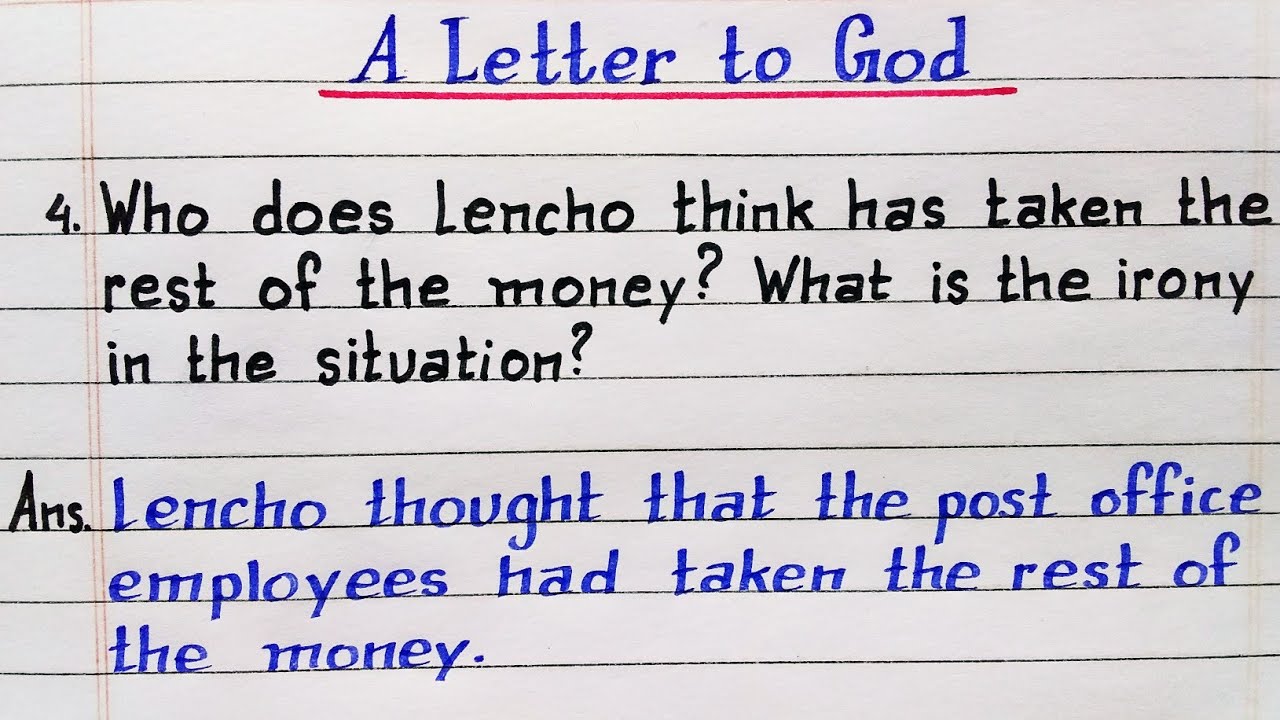 A Letter to God
4. Who does Lencho think has taken the
rest of the money? What is the irony
in the situation?
Ans. Lencho thought that the post office
employees had taken the rest of
the money.